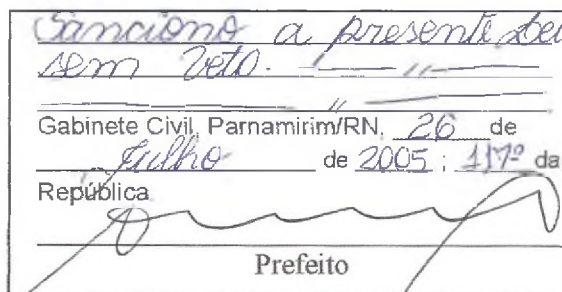 Sanciono a presente Lei
sem Veto.
Gabinete Civil, Parnamirim/RN, 26 de
Julho de 2005 ; 117º da
República
Prefeito